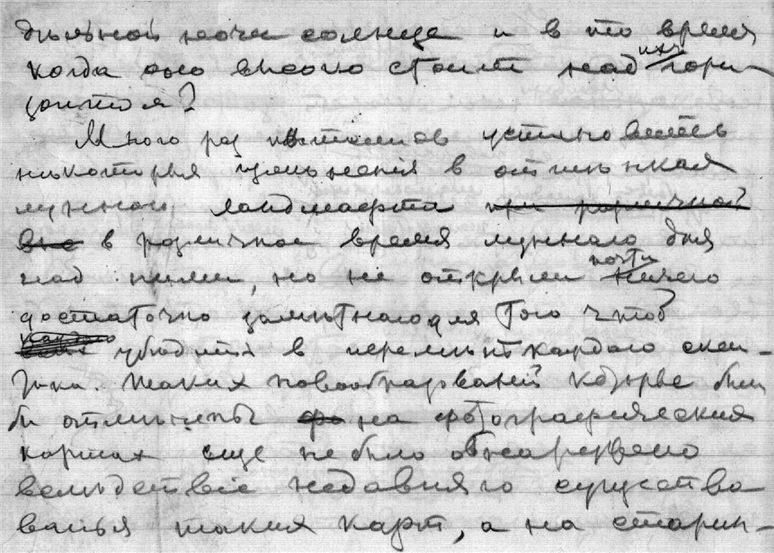 ночи солнце и в то время
когда оно высоко стоит над ихъ гори-
зонтомъ?
Много раз пытались установить
некоторыя изменения в оттенках
лунной ландшафта при различной
в различное время луннаго дня
над ними, но не открыли почти ничего
достаточно заметнаго для того чтоб
убедится в перемене каждаго скеп-
тика. Таких новообразований которые были
бы отмечены на фотографических
картах еще не было обнаружено
вследствие недавняго существо
ванья таких карт, а на старин-